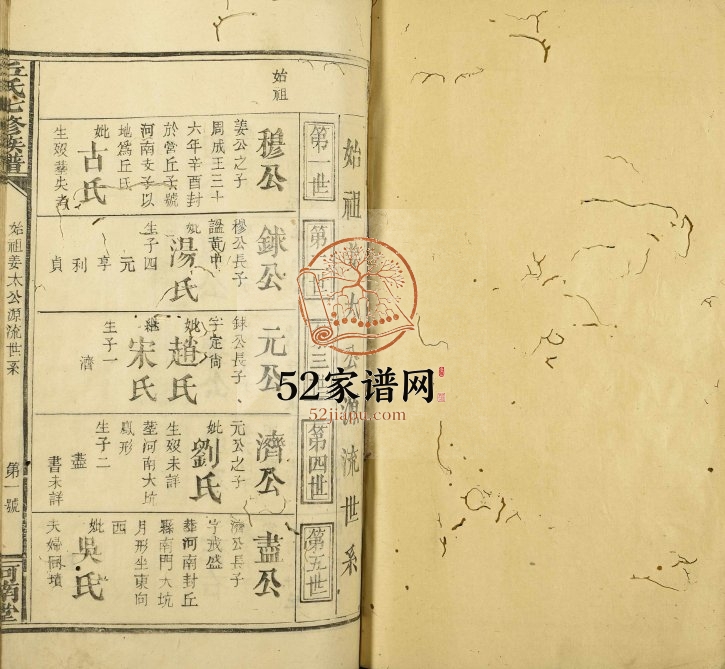 始祖姜太公源流世系
第一世
始祖
穆公
姜公之子
周成王三十
六年辛酉封
於營丘子號
河南女子以
地爲丘氏
妣古氏
生歿葬失考
第二世
銶公
穆公長子
謚黃中
妣湯氏
生子四
元
亨
利
貞
第三世
元公
銶公長子
字定尙
妣趙氏
繼宋氏
生子一
濟
第四世
濟公
元公之子
妣劉氏
生歿未詳
塟河南大坑
鳳形
生子二
盡
書未詳
第五世
盡公
濟公長子
字戒盛
葬河南封丘
縣南門大坑
月形坐東向
西
妣吳氏
夫婦同墳
丘氏七修族譜
始祖姜太公源流世系
第一號
河南堂
52家谱网
52jiapu.com